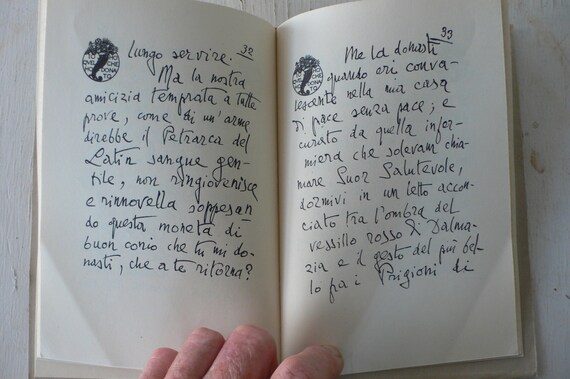 32
lungo servire.
Ma la nostra
amicizia temprata a tutte
prove, come di un'arme
direbbe il Petrarca del
Latin sangue gen-
tile, non ringiovenisce
e rinnovella soppesan
do questa moneta di
buon conio che tu mi do-
nasti, che a te ritorna?
33
Me la donasti
quando eri conva-
lescente nella mia casa
di pace senza pace; e
curato da quella infer-
miera che solevam chia-
mare Suor Salutevole,
dormivi in un letto accon-
ciato tra l'ombra del
vessillo rosso di Dalma-
zia e il gesto del più bel-
lo fra i Prigioni di